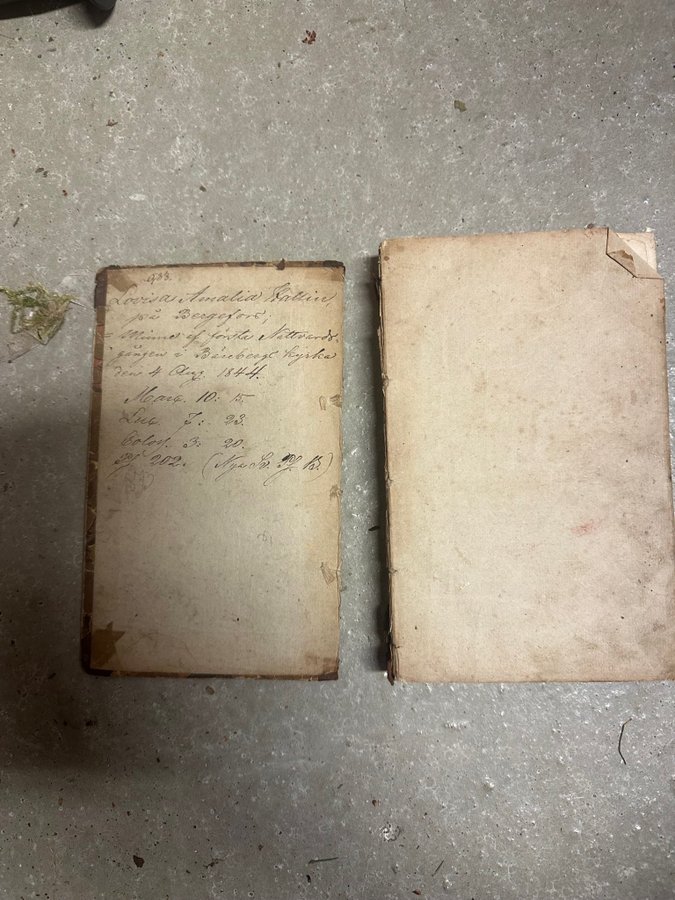 Lovisa Amalia Wallin,
på Bergefors;
Minne af första Nattvards-
gången i kyrka
den 4 Aug. 1844.
Marc. 10: 15.
Luc. 7: 23.
Coloss. 3: 20.
Ps. 202. (Nya Sv. Ps. B.)